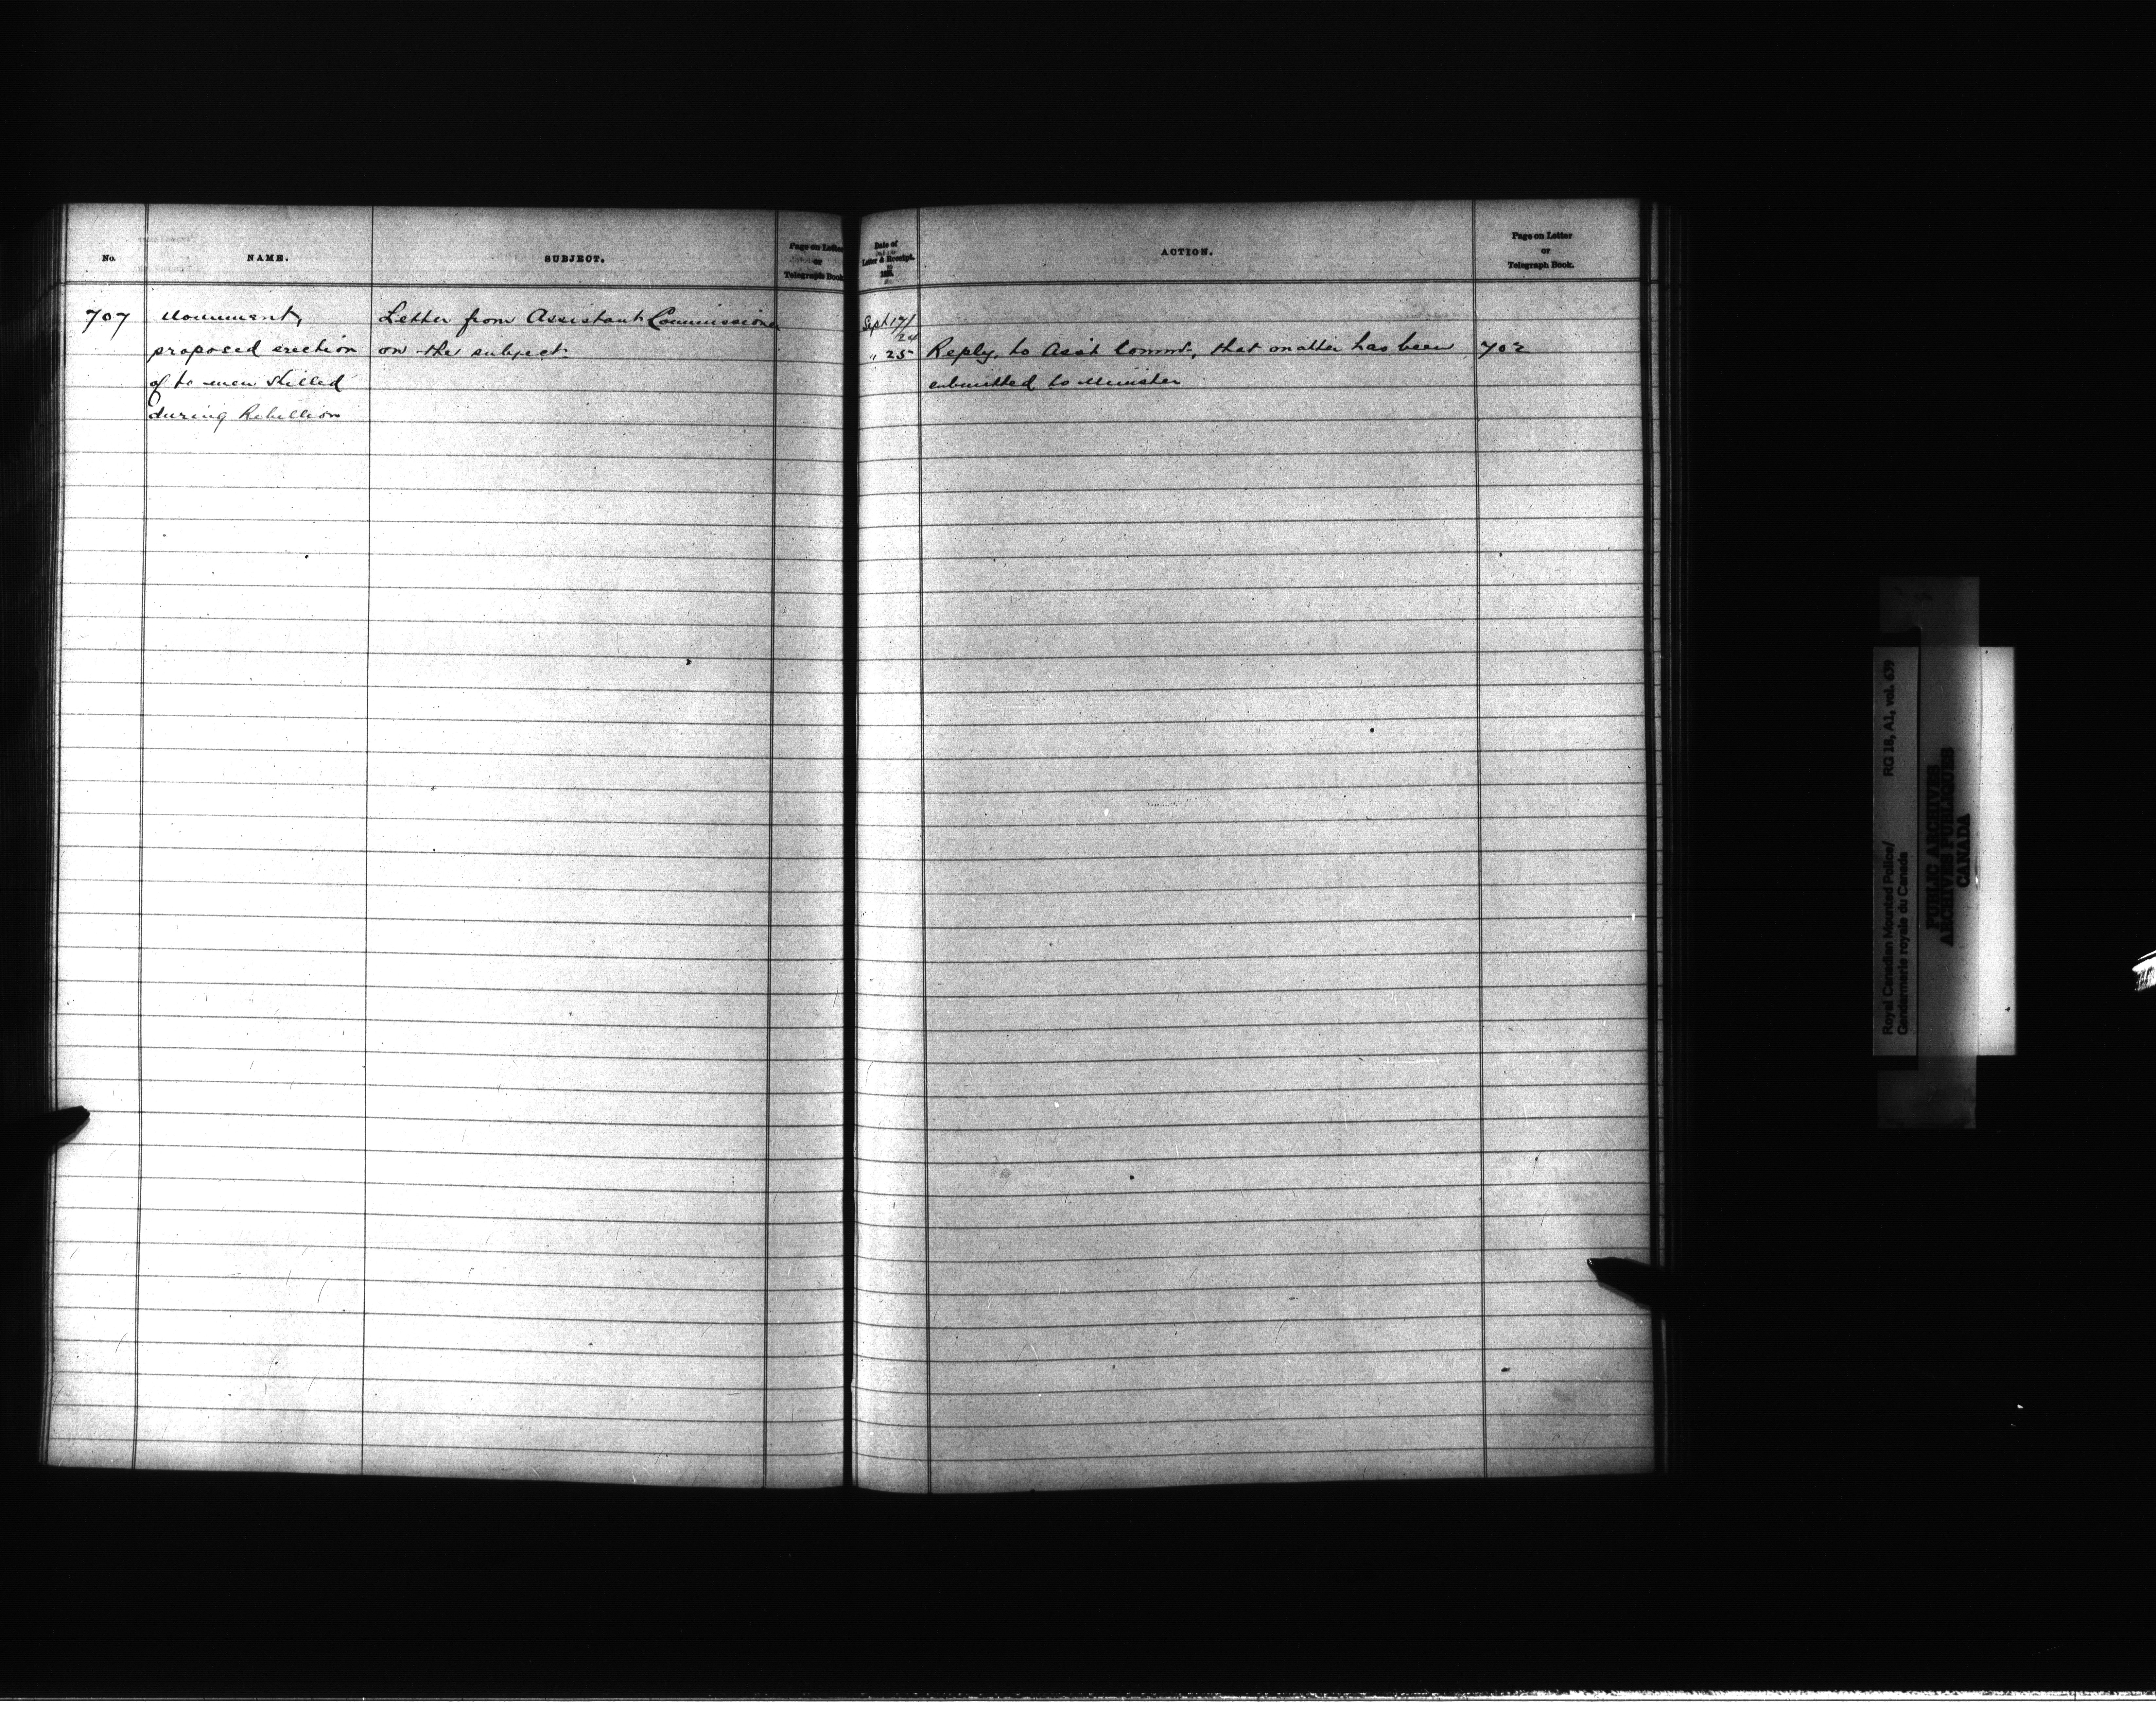 No.
NAME.
SUBJECT.
Page on Letter
or
Telegraph Book.
707
Monument,
proposed erection
of to men killed
during Rebellion
Letter from Assistant Commissioner
on the subject.
Date of
Letter & Receipt.
ACTION.
Page on Letter
or
Telegraph Book.
Sept 17/
24
" 25
Reply, to Asst Commr, that matter has been
submitted to Minister
702
Royal Canadian Mounted Police/
Gendarmerie royale du Canada
RG 18, A1, vol. 639
PUBLIC ARCHIVES
ARCHIVES PUBLIQUES
CANADA